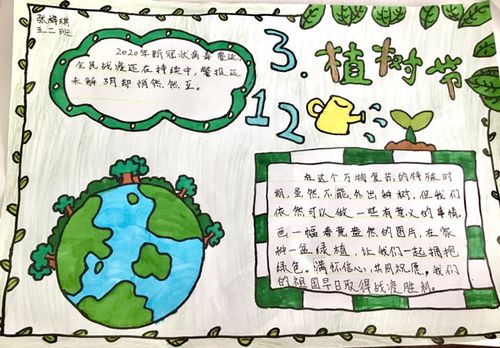 张梅琪
三二班
2020年新冠状病毒蔓延
全民战疫还在持续中,警报还
未解 3月却悄然然至。
3.
12
植树节
在这个万物复苏的特殊时
期,虽然不能外出种树,但我们
依然可以做一些有意义的事情,
画一幅春意盎然的图片,在家
种一盆绿植,让我们一起拥抱
绿色。满怀信心,共同祝愿,我们
的祖国早日取得战疫胜利。